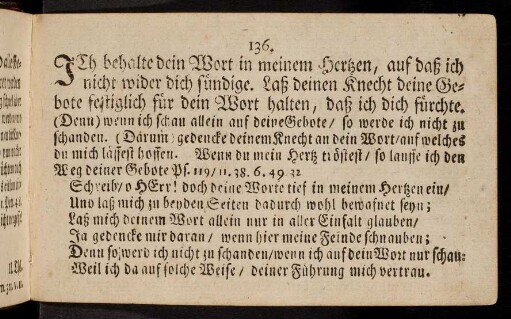 136.
ICh behalte dein Wort in meinem Hertzen, auf daß ich
nicht wider dich sündige. Laß deinen Knecht deine Ge-
bote festiglich für dein Wort halten, daß ich dich fürchte.
(Denn) wenn ich schau allein auf deine Gebote/ so werde ich nicht zu
schanden. (Darum) gedencke deinem Knecht an dein Wort/ auf welches
du mich lässest hoffen. Wenn du mein Hertz tröstest/ so lauffe ich den
Weg deiner Gebote Ps. 119/ 11. 38. 6. 49. 32
Schreib/ o HErr! doch deine Worte tief in meinem Hertzen ein/
Uno laß mich zu beyden Seiten dadurch wohl bewafnet seyn;
Laß mich deinem Wort allein nur in aller Einfalt glauben/
Ja gedencke mir daran/ wenn hier meine Feinde schnauben;
Denn so werd ich nicht zu schanden/ wenn ich auf dein Wort nur schau:
Weil ich da auf solche Weise/ deiner Führung mich vertrau.